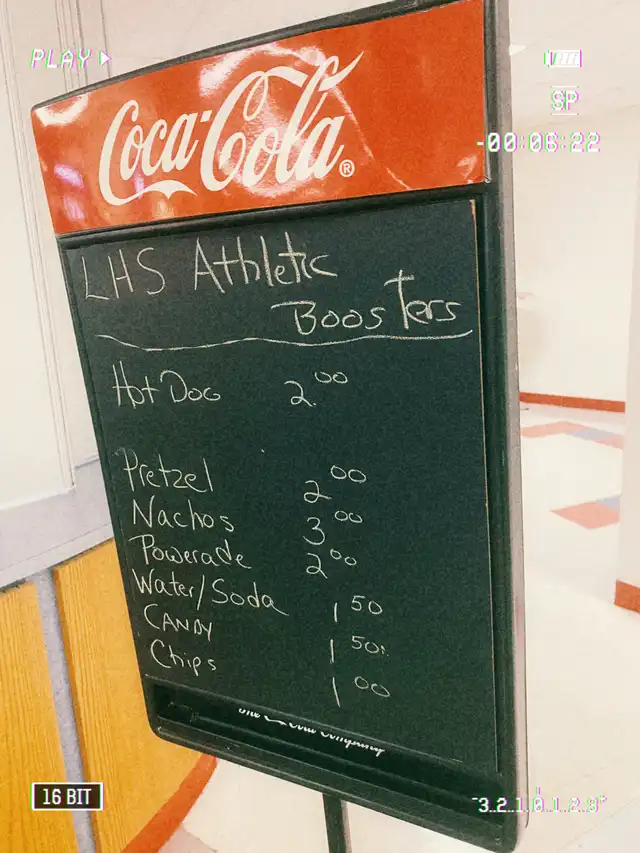 PLAY
SP
-00:06:22
Coca-Cola®
LHS Athletic
Boosters
Hot Dog 2.00
Pretzel 2.00
Nachos 3.00
Powerade 2.00
Water/Soda 1.50
CANDY 1.50
Chips 1.00
Company
16 BIT
-3.2.1.0.1.2.3+